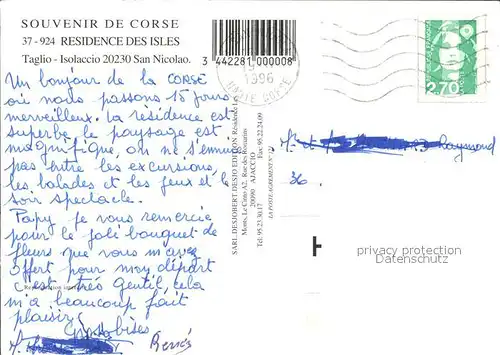 SOUVENIR DE CORSE
37 - 924 RESIDENCE DES ISLES
Taglio - Isolaccio 20230 San Nicolao.
3 442281 000008
1996
HAUTE CORSE
2,70
Un bonjour de la CORSE
où nous passons 15 jours
merveilleux. La résidence est
superbe le paysage est
magnifique, on ne s'ennuie
pas entre les excursions,
les balades et les jeux et le
soir spectacle.
Papy je vous remercie
pour le joli bouquet de
fleurs que vous m'avez
offert pour mon départ
c'est très gentil, cela
m'a beaucoup fait
plaisir.
Grosses bises
SARL DESJOBERT DESJO EDITION Résidence Les
Monts, Le Cinto A2, Rue des Romarins
20090 AJACCIO
Tél. 95.23.30.17 Fax. 95.22.24.09
LA POSTE AGREEMENT N°
Raymond
36
privacy protection
Datenschutz